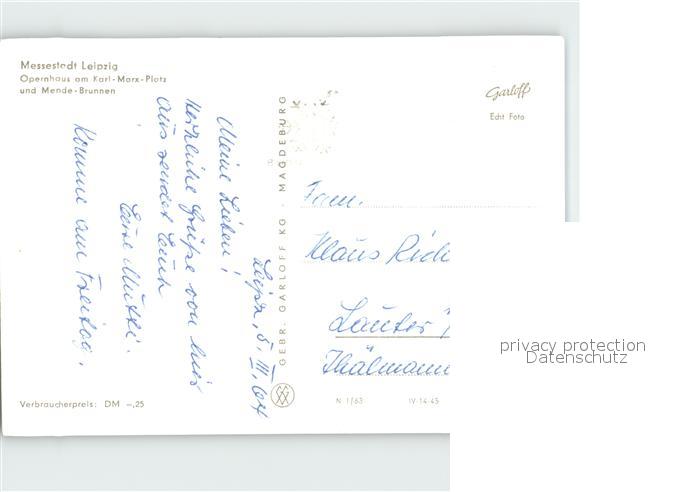 Messestadt Leipzig
Opernhaus am Karl-Marx-Platz
und Mende-Brunnen
Leipz, 5. III. 64
Meine Lieben!
Herzliche Grüße von hier
aus sendet Euch
Eure Mutti.
Komme am Freitag.
Verbraucherpreis: DM -,25
GEBR. GARLOFF KG · MAGDEBURG
Garloff
Echt Foto
Fam.
Klaus
Lauter
Thälmann
N 1/63 IV-14-45
privacy protection
Datenschutz